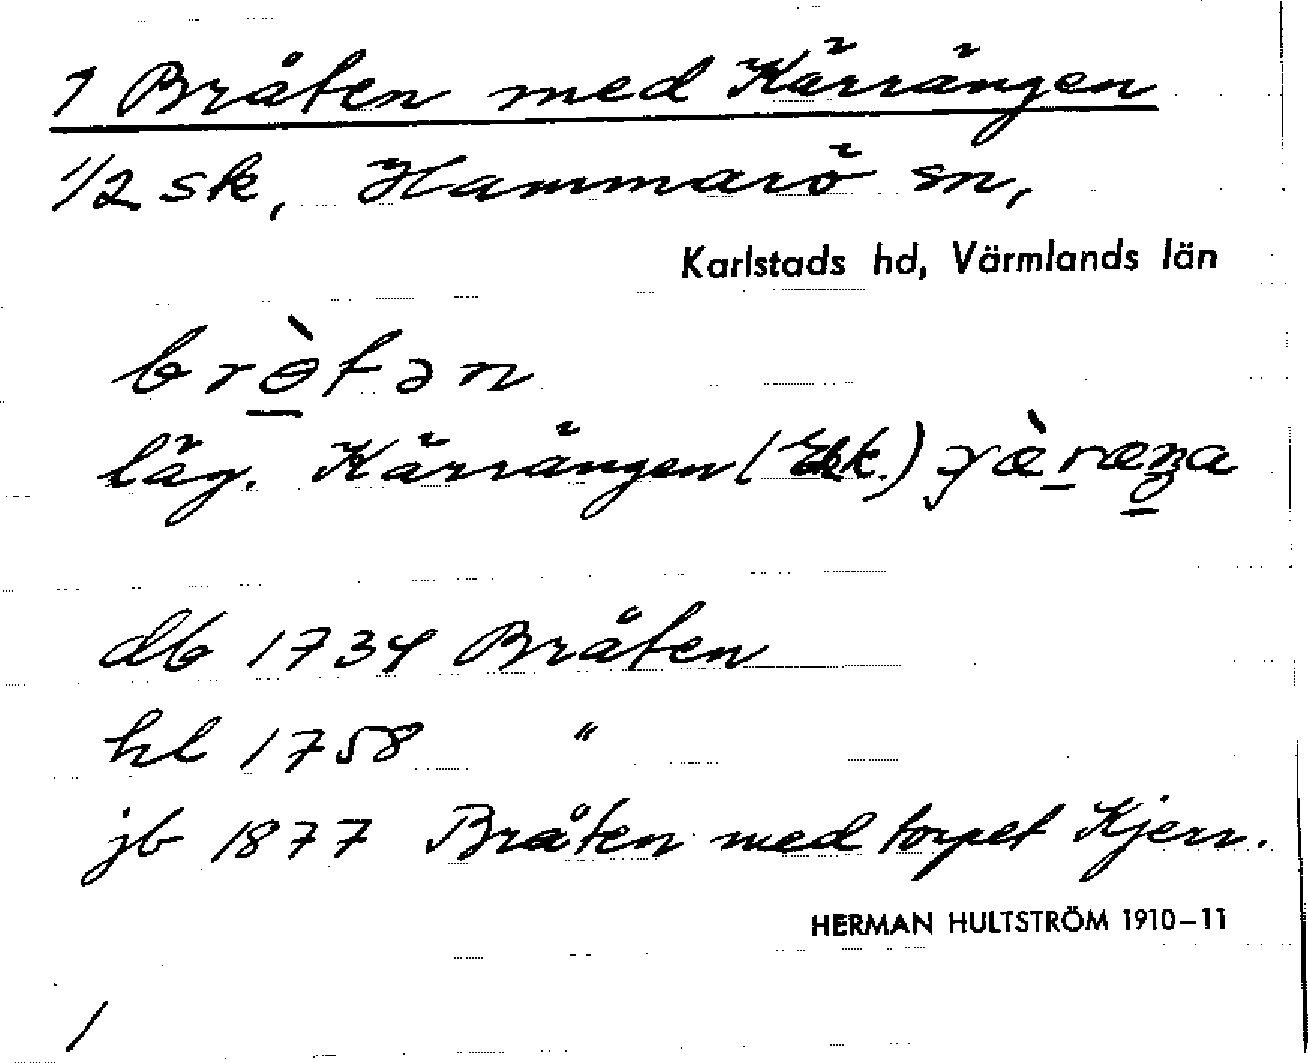 1 Bråten med Kärrängen
1/2 sk, Hammarö sn,
Karlstads hd, Värmlands län
brò̱tən
läg. Kärrängen (Ekk.)
db 1734 Bråten
hl 1758 "
jb 1877 Bråten med torpet Kjerr.
HERMAN HULTSTRÖM 1910–11
1